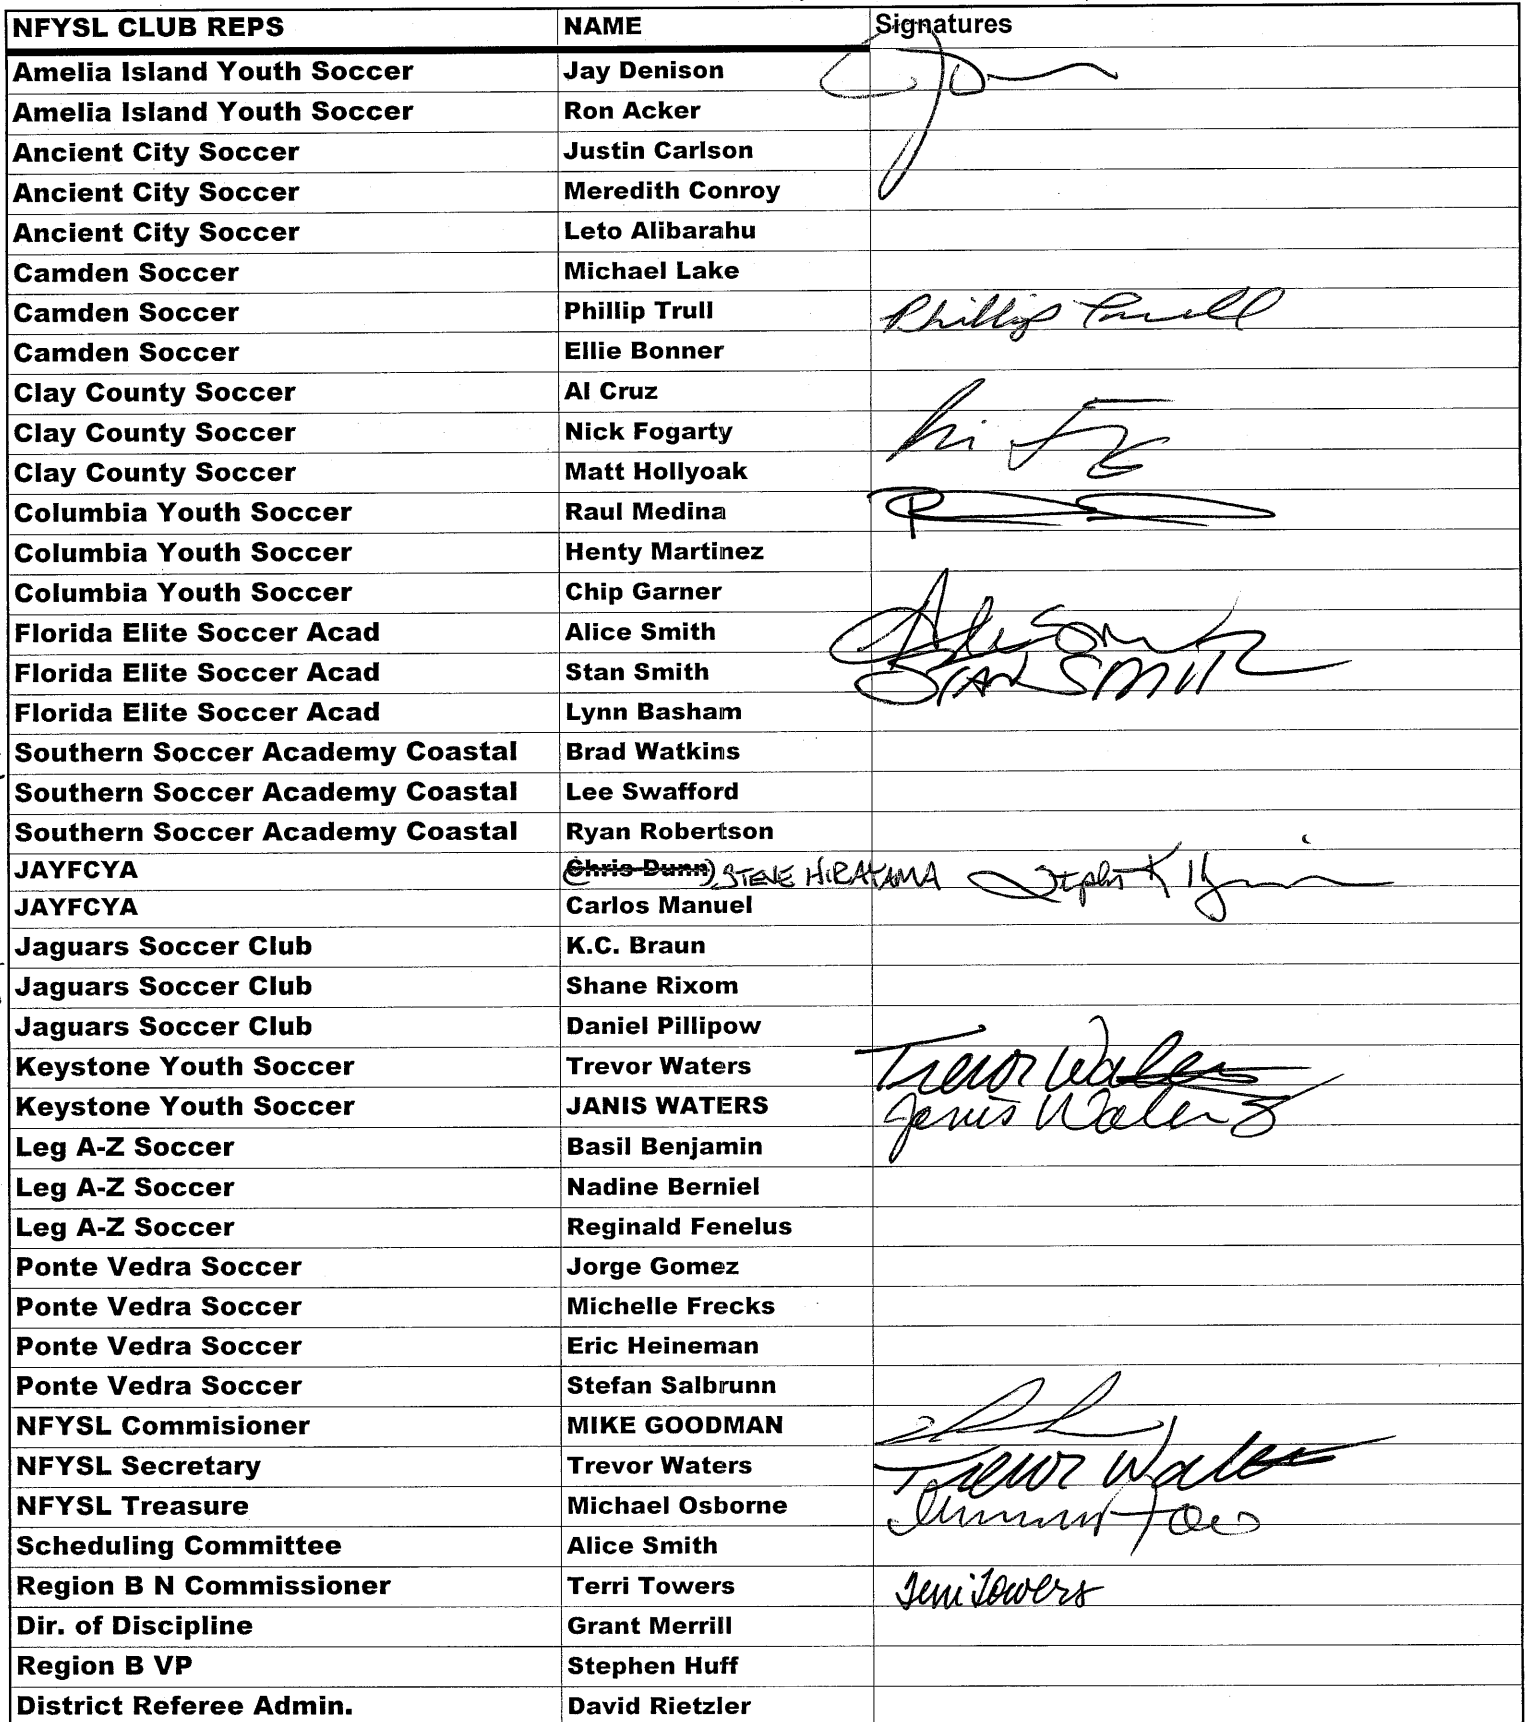 NFYSL CLUB REPS NAME Signatures
Amelia Island Youth Soccer Jay Denison
Amelia Island Youth Soccer Ron Acker
Ancient City Soccer Justin Carlson
Ancient City Soccer Meredith Conroy
Ancient City Soccer Leto Alibarahu
Camden Soccer Michael Lake
Camden Soccer Phillip Trull Phillip
Camden Soccer Ellie Bonner
Clay County Soccer Al Cruz
Clay County Soccer Nick Fogarty
Clay County Soccer Matt Hollyoak
Columbia Youth Soccer Raul Medina
Columbia Youth Soccer Henty Martinez
Columbia Youth Soccer Chip Garner
Florida Elite Soccer Acad Alice Smith
Florida Elite Soccer Acad Stan Smith STAN SMITH
Florida Elite Soccer Acad Lynn Basham
Southern Soccer Academy Coastal Brad Watkins
Southern Soccer Academy Coastal Lee Swafford
Southern Soccer Academy Coastal Ryan Robertson
JAYFCYA (Chris Dunn) STEVE HIRAYAMA
JAYFCYA Carlos Manuel
Jaguars Soccer Club K.C. Braun
Jaguars Soccer Club Shane Rixom
Jaguars Soccer Club Daniel Pillipow
Keystone Youth Soccer Trevor Waters Trevor Waters
Keystone Youth Soccer JANIS WATERS Janis Waters
Leg A-Z Soccer Basil Benjamin
Leg A-Z Soccer Nadine Berniel
Leg A-Z Soccer Reginald Fenelus
Ponte Vedra Soccer Jorge Gomez
Ponte Vedra Soccer Michelle Frecks
Ponte Vedra Soccer Eric Heineman
Ponte Vedra Soccer Stefan Salbrunn
NFYSL Commisioner MIKE GOODMAN
NFYSL Secretary Trevor Waters Trevor Waters
NFYSL Treasure Michael Osborne
Scheduling Committee Alice Smith
Region B N Commissioner Terri Towers Terri Towers
Dir. of Discipline Grant Merrill
Region B VP Stephen Huff
District Referee Admin. David Rietzler